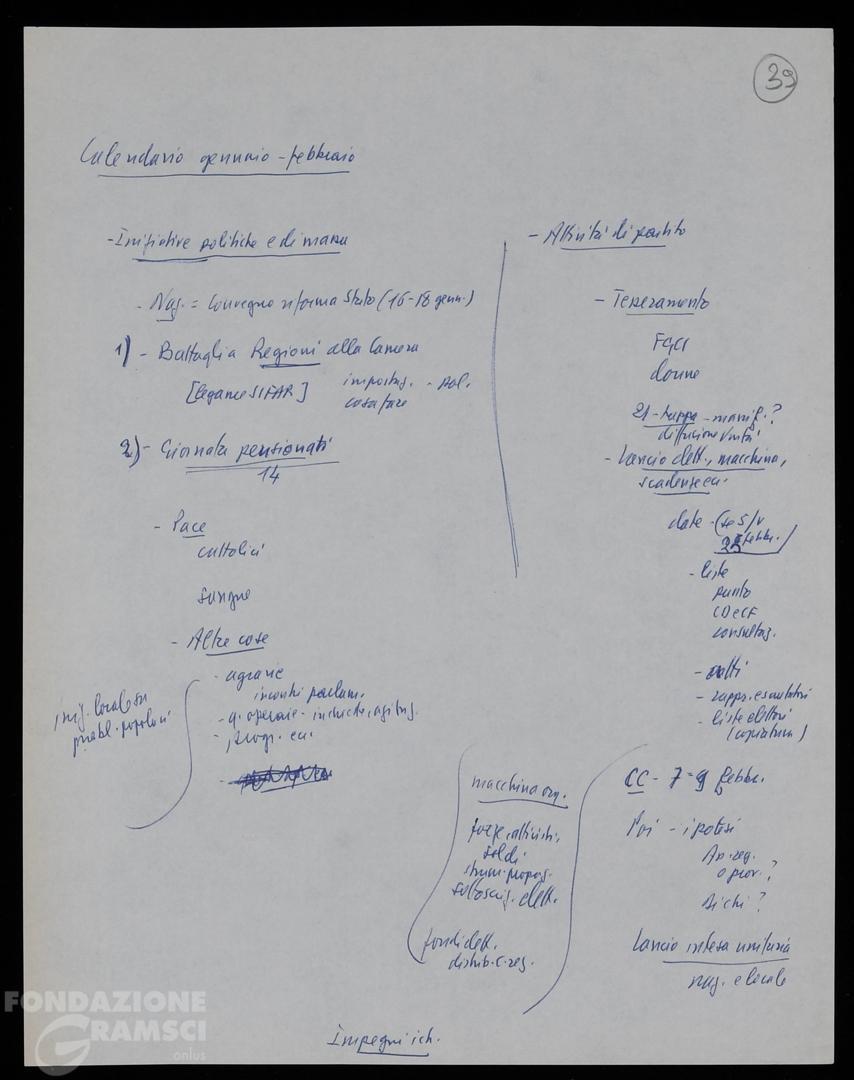 39
Calendario gennaio - febbraio
- Iniziative politiche e di massa
- Naz. = Convegno riforma Stato (16-18 genn.)
1) - Battaglia Regioni alla Camera
[legame SIFAR] impostaz. - pol.
cosa fare
2) - Giornata pensionati
14
- Pace
cattolici
sangue
- Altre cose
- agrarie
incontri parlam.
- q. operaie - inchieste, agitaz.
- progr. ecc.
iniz. locale su
probl. popolari
- Attività di partito
- Tesseramento
FGCI
donne
21 - tappa - manif.?
diffusione Unità
- Lancio elett., macchina,
scadenze ecc.
date - (se 5/V
25 febbr.)
- liste
punto
CD e CF
consultaz.
- patti
- rappr. e scrutatori
- liste elettori
(copiatura)
macchina org.
forze, attivisti,
soldi
strum. propag.
sottoscriz. elett.
fondi elett.
distrib. c. reg.
CC - 7-9 febbr.
Poi - ipotesi
Ass. reg.
o prov.?
Lancio intesa unitaria
naz. e locale
Impegni
FONDAZIONE
GRAMSCI
onlus